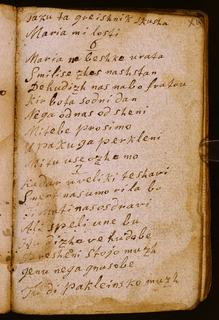 kazu ta greishnik skusha
Maria mi losti
6
Maria na beshke vrata
Smilise zhes nashstan
Pehudizh nas nabo fratou
Kir bota sodni dan
Nega od nas od sheni
Mi tebe prosimo
Upaku ga perkleni
Mi tu use ozhemo
7
Kadar uveliki teshavi
Smert nas umo rila bo
nas osdravi
Ali speli une bu
Hudizha
stojo muzh
genu nega gnusobe
Tudi pakleinsko muzh